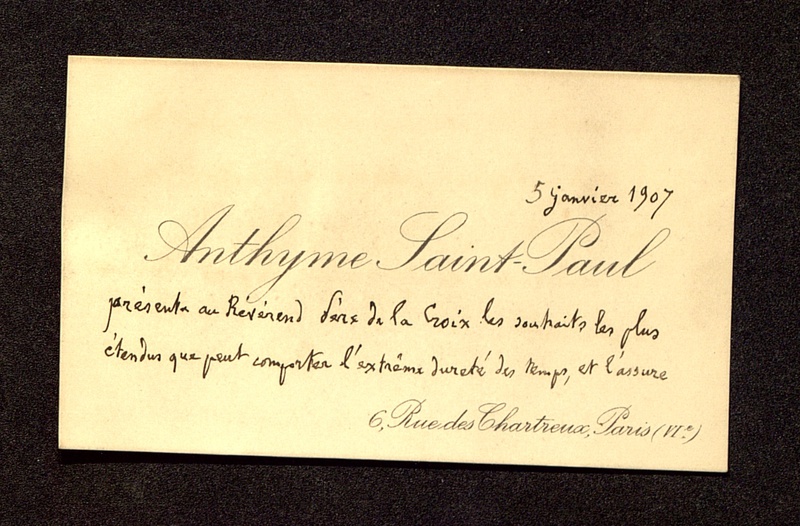 5 janvier 1907
Anthyme Saint-Paul
présente au Révérend Père de la Croix les souhaits les plus
étendus que peut comporter l'extrême dureté des temps, et l'assure
6, Rue des Chartreux, Paris (VIe)